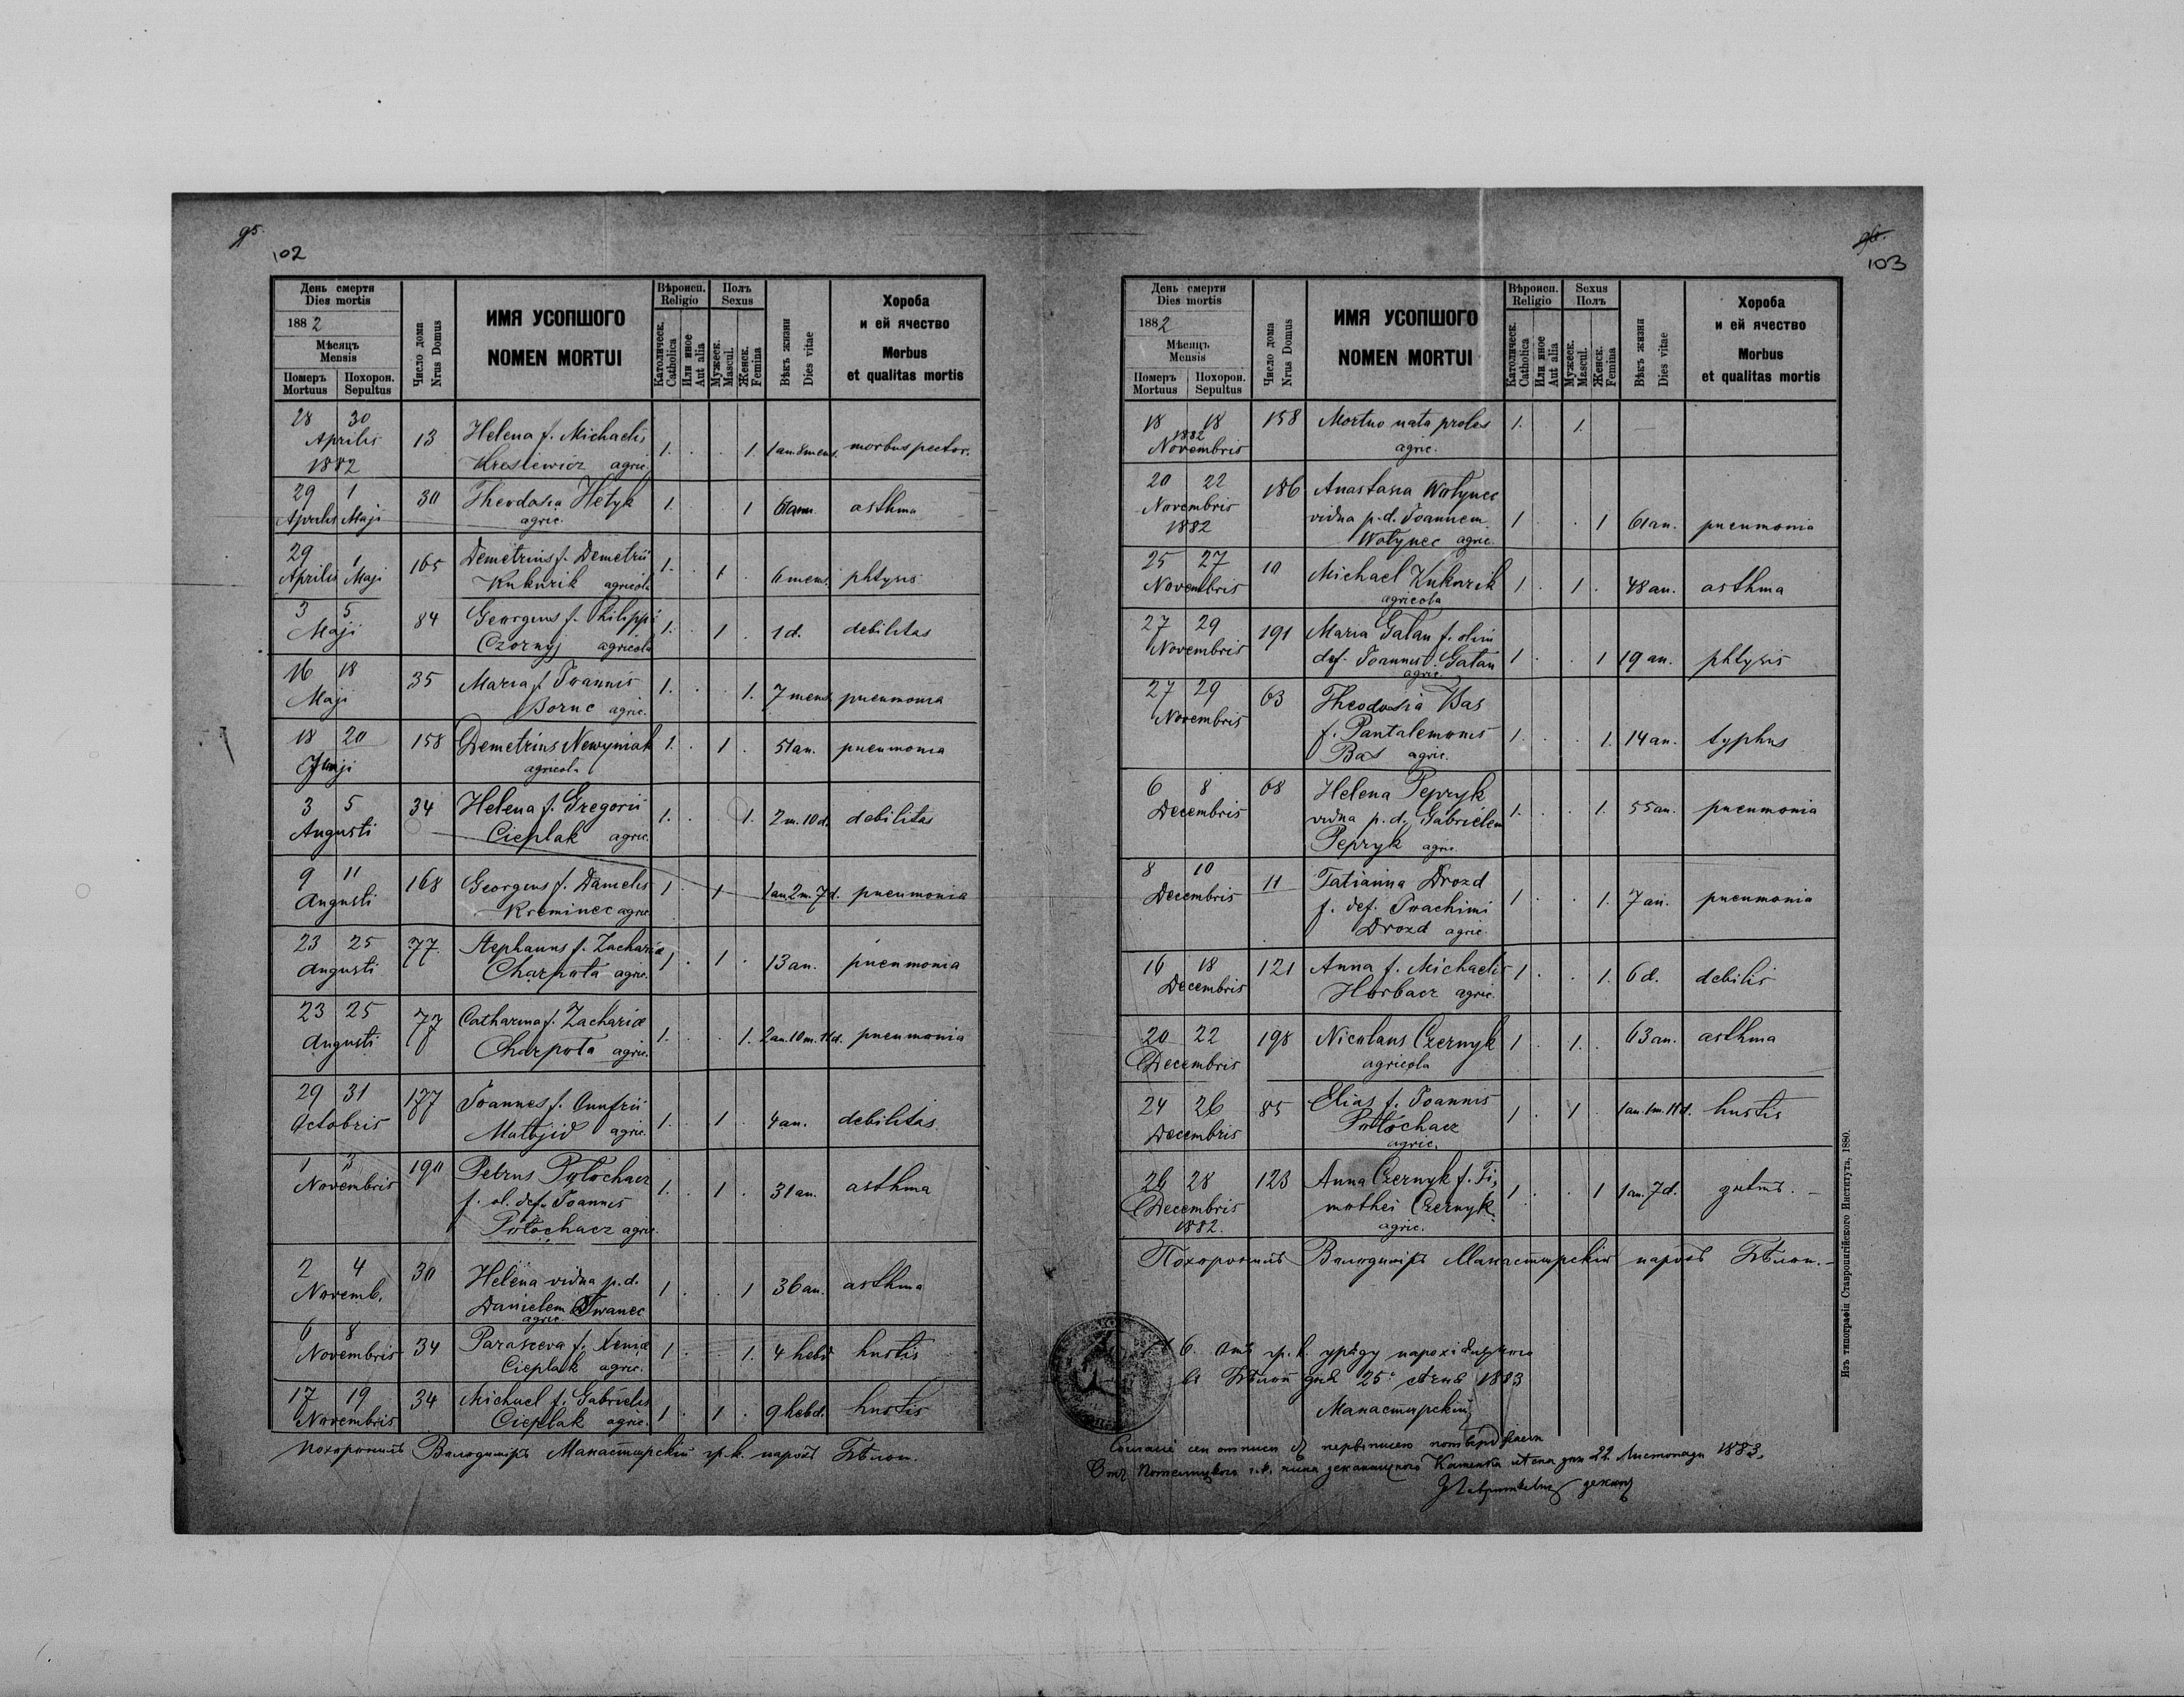 95.
102
День смерти
Dies mortis
1882
Мѣсяць
Mensis
Померъ Mortuus
Похорон. Sepultus
Число дома
Nrus Domus
ИМЯ УСОПШОГО
NOMEN MORTUI
Вѣроисп.
Religio
Католическ.
Catholica
Или иное
Aut alia
Полъ
Sexus
Мужеск.
Mascul.
Женск.
Femina
Вѣкъ жизни
Dies vitae
Хороба
и ей ячество
Morbus
et qualitas mortis
28 30 Aprilis 1882 13 Helena f. Michaelis
agric. 1. 1. 1 an 8 mens. morbus pector.
29 Aprilis 1 Maji 30 Theodosia Hetyk
agric. 1. 1 asthma
29 Aprilis 1 Maji 165 Demetrius f. Demetrii
Kukurik agricola 1. 1 6 mens. phtysis
3 5 Maji 84 Georgius f. Philippi
Czornyj agricola 1. 1 1 d. debilitas
16 18 Maji 35 Maria f. Joannis
Boruc agric. 1. 1. 7 mens. pneumonia
18 20 158 Demetrius Newyniak
agricola 1. 1 51 an. pneumonia
3 5 Augusti 34 Helena f. Gregorii
Cieplak agric. 1. 1. 2 m. 10 d. debilitas
9 11 Augusti 168 Georgius f. Danielis
Kreminec agric. 1 1 1 an. 2 m. 7 d. pneumonia
23 25 Augusti 77 Stephanus f. Zachariæ
Charpota agric. 1 1 13 an. pneumonia
23 25 Augusti 77 Catharina f. Zachariæ
Charpota agric. 1. 1. 2 an. 10 m. 11 d. pneumonia
29 31 Octobris 177 Joannes f. Onufrii
agric. 1. 1 4 an. debilitas.
1 3 Novembris 190 Petrus Potochacz
f. ol. def. Joannis
Potochacz agric. 1. 1 31 an. asthma
2 4 Novemb. 30 Helena vidua p. d.
Danielem Iwanec
agric. 1 1 36 an. asthma
6 8 Novembris 34 Parasceva f. Xeniæ
Cieplak agric. 1 1. 4 hebd hustis
17 19 Novembris 34 Michael f. Gabrielis
Cieplak agric. 1 1 9 hebd. hustis
Похоронилъ Володимiръ Манастырскiй гр. к. парохъ Бѣлои.
103
День смерти
Dies mortis
1882
Мѣсяць
Mensis
Померъ Mortuus
Похорон. Sepultus
Число дома
Nrus Domus
ИМЯ УСОПШОГО
NOMEN MORTUI
Вѣроисп.
Religio
Католическ.
Catholica
Или иное
Aut alia
Sexus
Полъ
Мужеск.
Mascul.
Женск.
Femina
Вѣкъ жизни
Dies vitae
Хороба
и ей ячество
Morbus
et qualitas mortis
18 18 1882 Novembris 158 Mortuo nata proles
agric. 1. 1.
20 22 Novembris 1882 186 Anastasia Wotynec
vidua p. d. Joannem
Wotynec agric. 1 1 61 an. pneumonia
25 27 Novembris 10 Michael Kukurik
agricola 1 1 48 an. asthma
27 29 Novembris 191 Maria Gatan f. olim
def. Joannis Gatan
agric. 1 1 19 an. phtysis
27 29 Novembris 63 Theodosia Bas
f. Pantalemonis
Bas agric. 1 1. 14 an. typhus
6 8 Decembris 68 Helena Pepryk
vidua p. d. Gabrielem
Pepryk agric. 1. 1. 55 an. pneumonia
8 10 Decembris 11 Tatianna Drozd
f. def. Joachimi
Drozd agric. 1 1. 7 an. pneumonia
16 18 Decembris 121 Anna f. Michaelis
Horbacz agric. 1 1. 6 d. debilis
20 22 Decembris 198 Nicolaus Czernyk
agricola 1 1. 63 an. asthma
24 26 Decembris 85 Elias f. Joannis
Potochacz
agric. 1 1 1 an. 1 m. 11 d. hustis
26 28 Decembris 1882. 123 Anna Czernyk f. Ti-
mothei Czernyk
agric. 1 1 1 an. 7 d.
Похоронилъ Володимiръ Манастырскiй парохъ Бѣлои.
Отъ гр. к. уряду парохiального
Бѣлои дня 25. 1883
Манастырскiй
22 Листопада 1883.
Изъ типографiи Ставропигiйского Института, 1880.